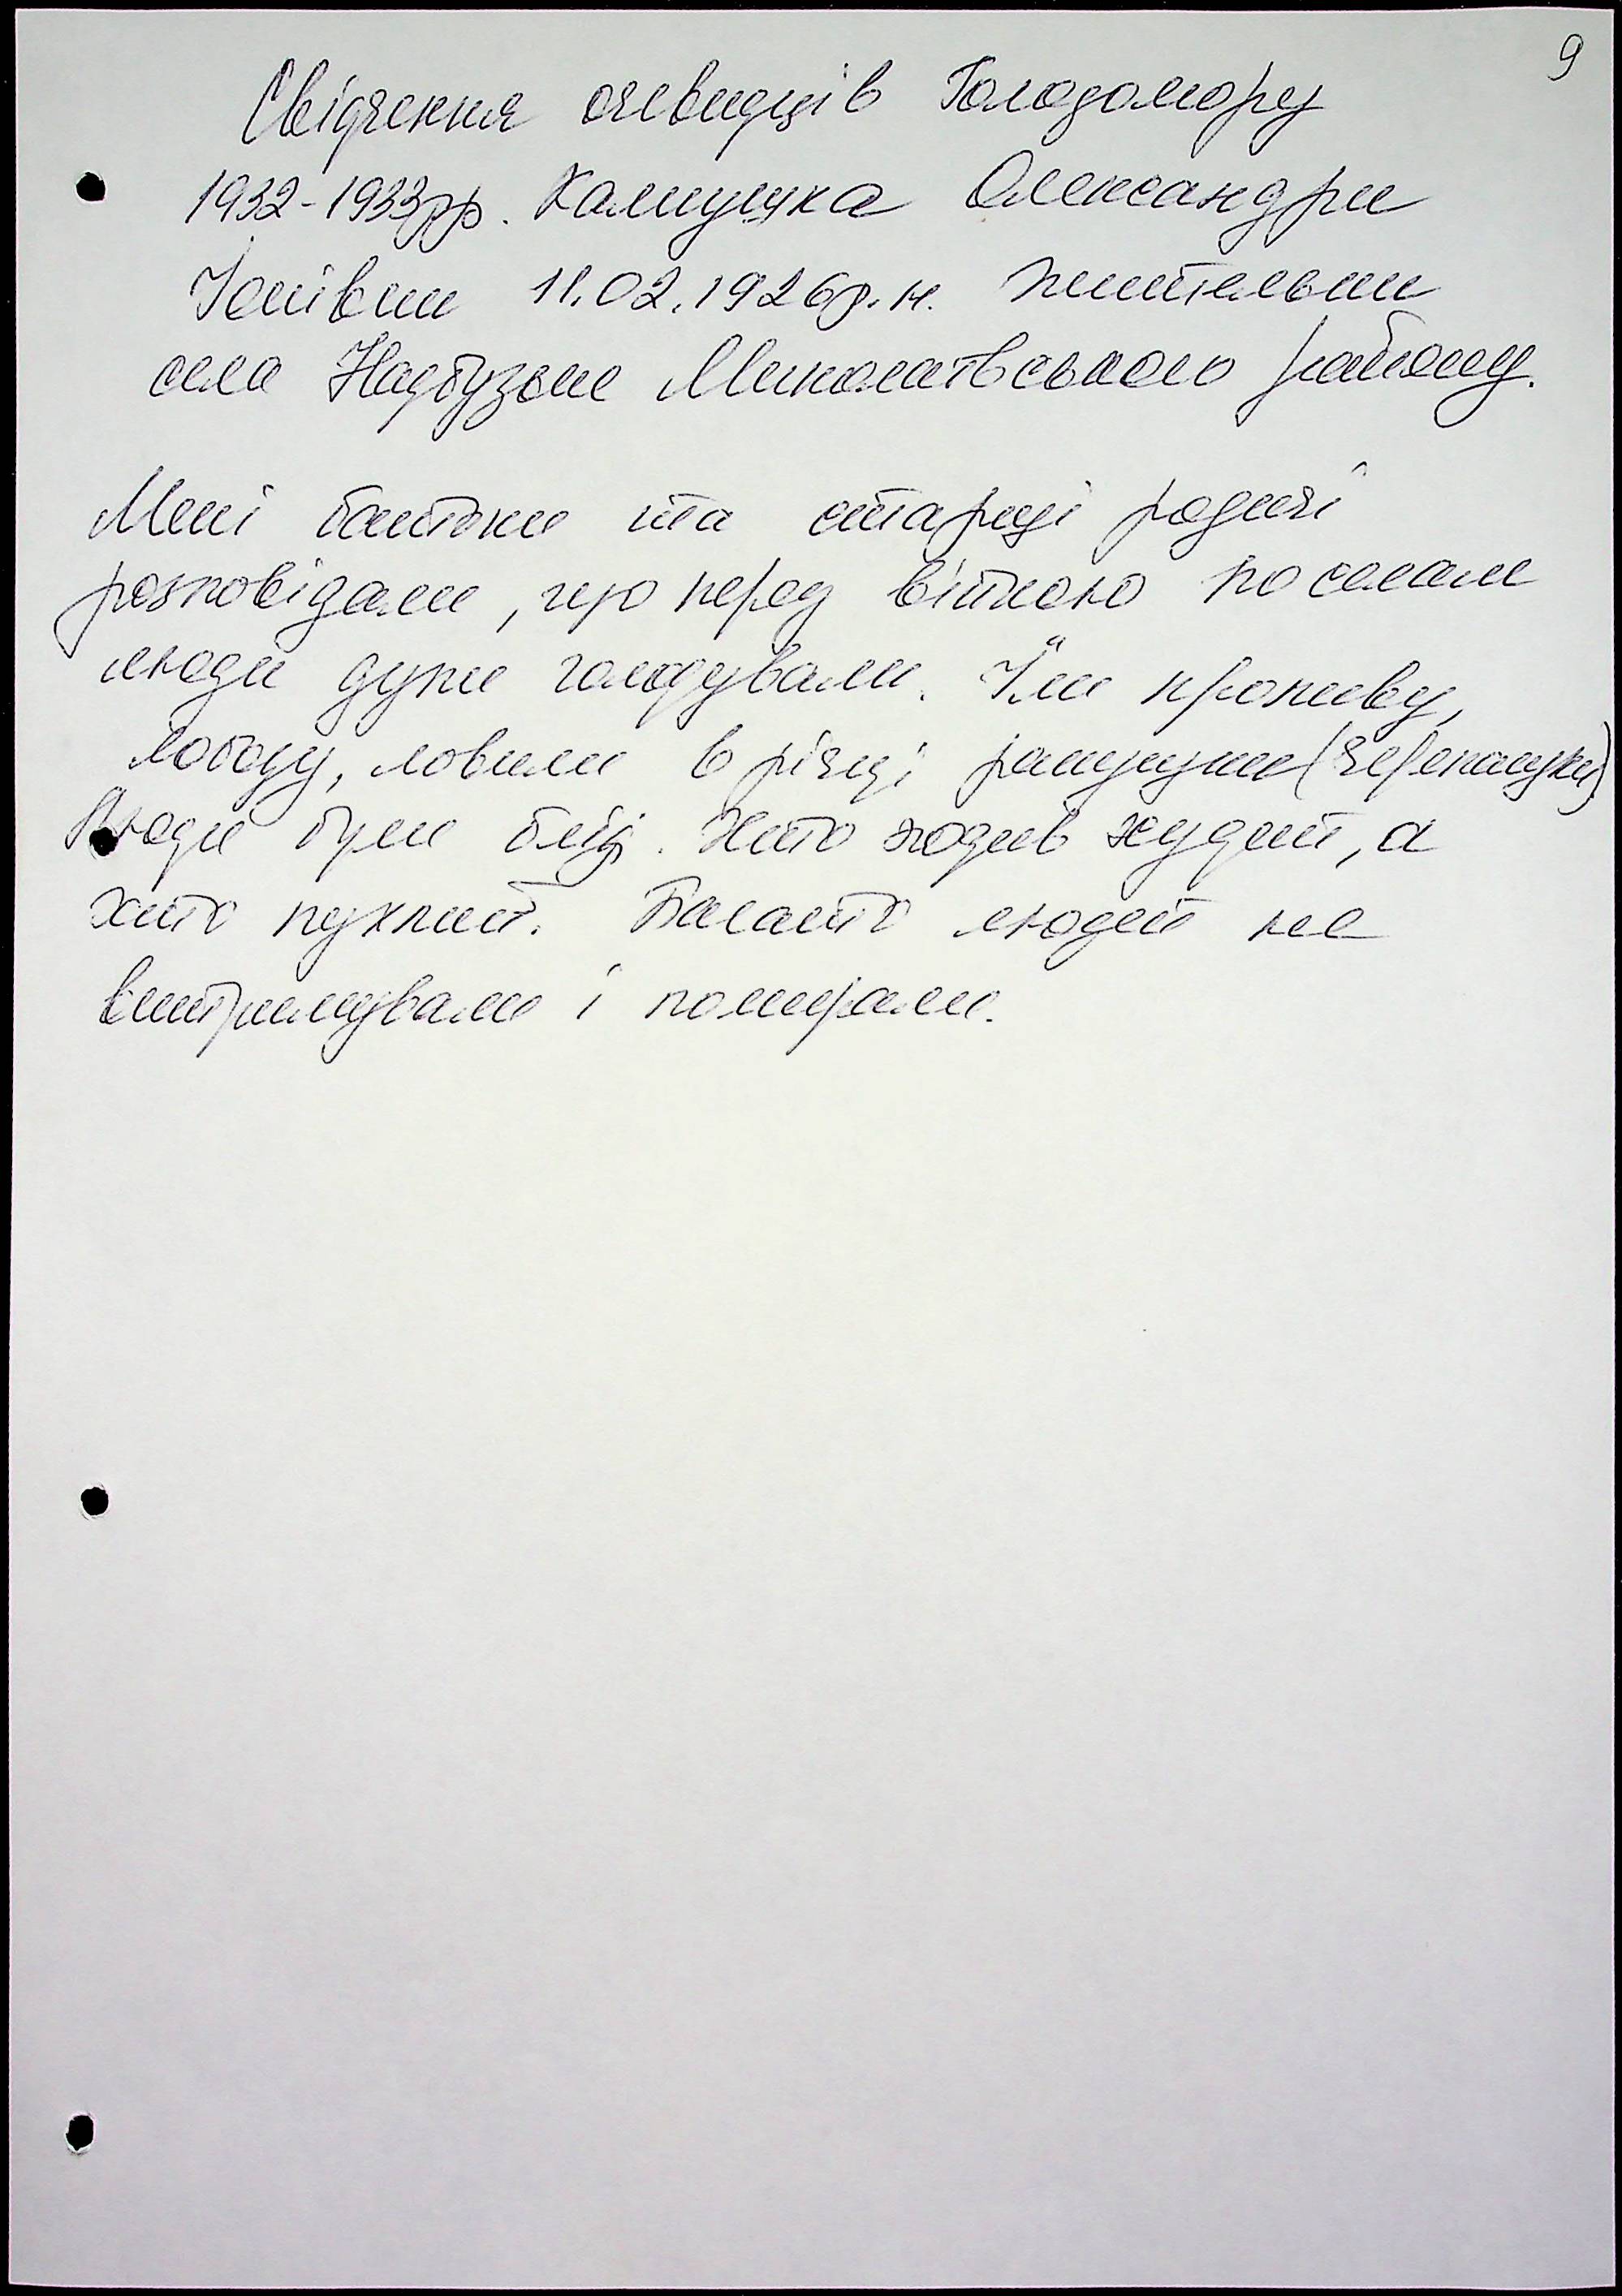 9
Свідчення очевидців Голодомору
1932-1933рр. Олександри
11.02.1926р.н. жительки
села Надбузьке Миколаївського району.
Мені батьки та старші родичі
розповідали, що перед війною по селам
люди дуже голодували. Їли кропиву,
лободу, ловили в річці (черепашки)
Люди були бліді. Хто ходив худий, а
хто пухлий. Багато людей не
витримували і помирали.